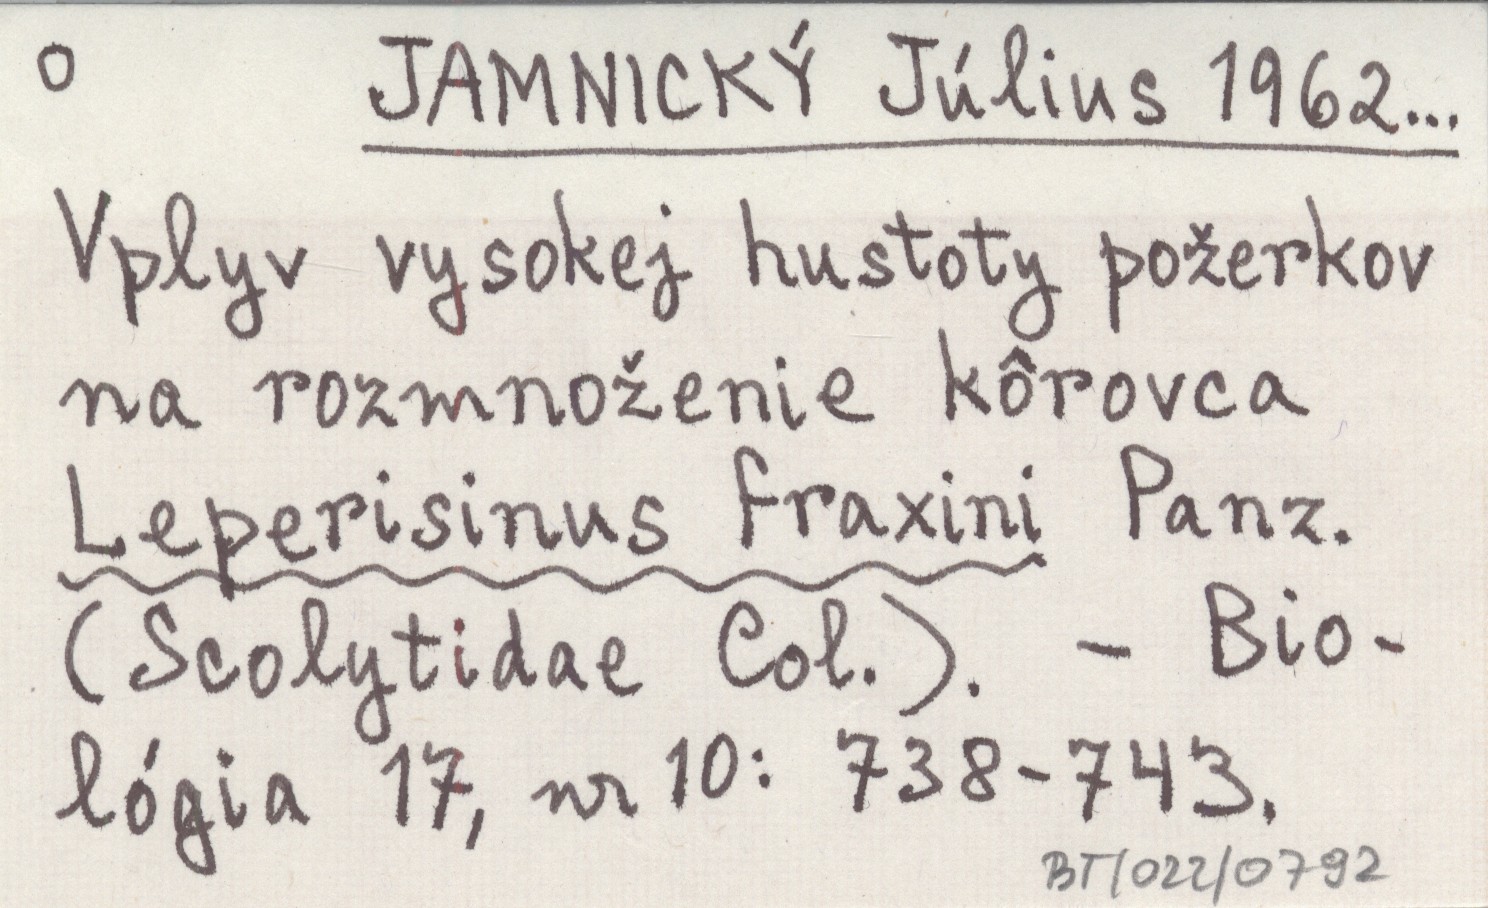 o JAMNICKÝ Július 1962...
Vplyv vysokej hustoty požerkov
na rozmnoženie kôrovca
Leperisinus fraxini Panz.
(Scolytidae Col.). - Bio-
lógia 17, nr 10: 738-743.
BT/022/0792